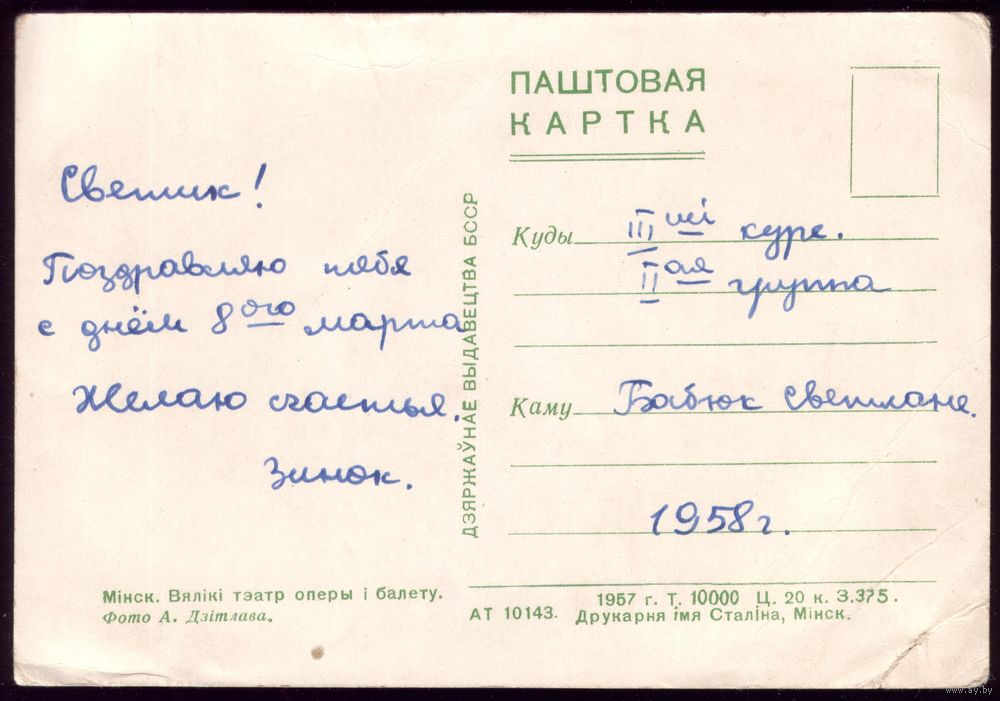 ПАШТОВАЯ
КАРТКА
Светик!
Поздравляю тебя
с днём 8ого марта
Желаю счастья.
Зинок.
Куды IIIий курс.
IIая группа
Каму Бабюк Светлане.
1958 г.
ДЗЯРЖАЎНАЕ ВЫДАВЕЦТВА БССР
Мінск. Вялікі тэатр оперы і балету.
Фото А. Дзітлава.
АТ 10143.
1957 г. Т. 10000 Ц. 20 к. З.375.
Друкарня імя Сталіна, Мінск.
www.ay.by